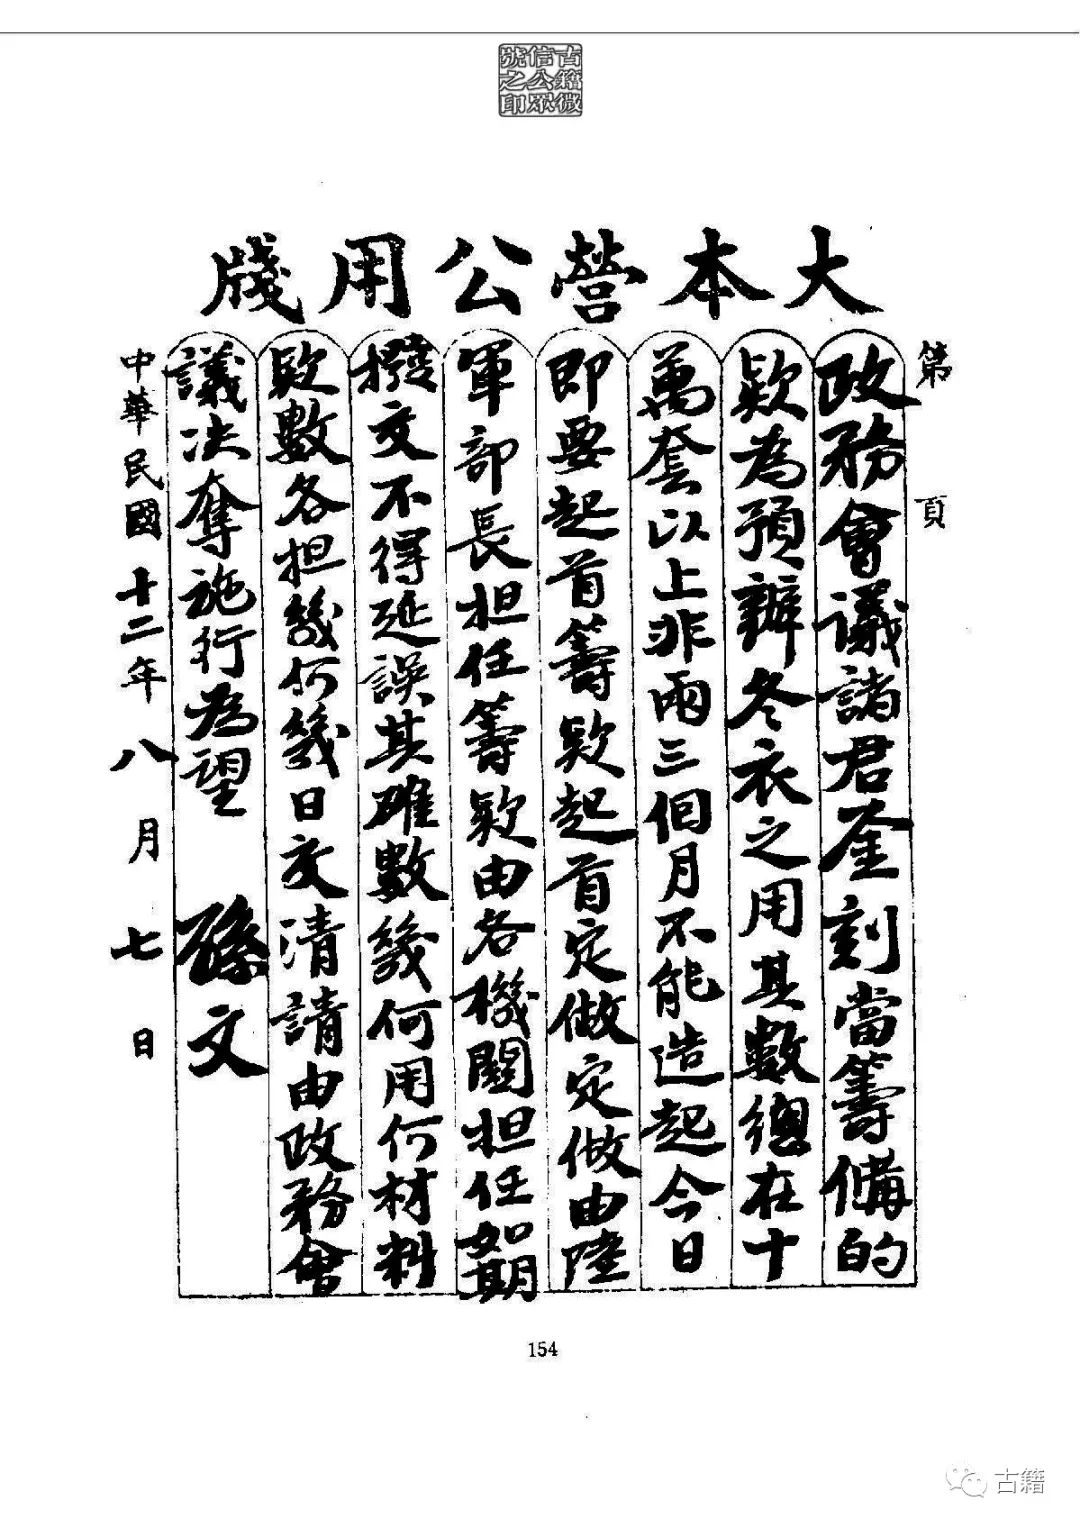 古籍微
信公眾
號之印
大本營公用牋
第 頁
政務會議諸君鉴刻當籌備的
欵為預辦冬衣之用其數總在十
萬套以上非兩三個月不能造起今日
即要起首籌欵起首定做定做由陸
軍部長担任籌欵由各機關担任如期
撥交不得延誤其確數幾何用何材料
欵數各担幾何幾日交清請由政務會
議決奪施行為望 孫文
中華民國十二年八月七日
154
古籍